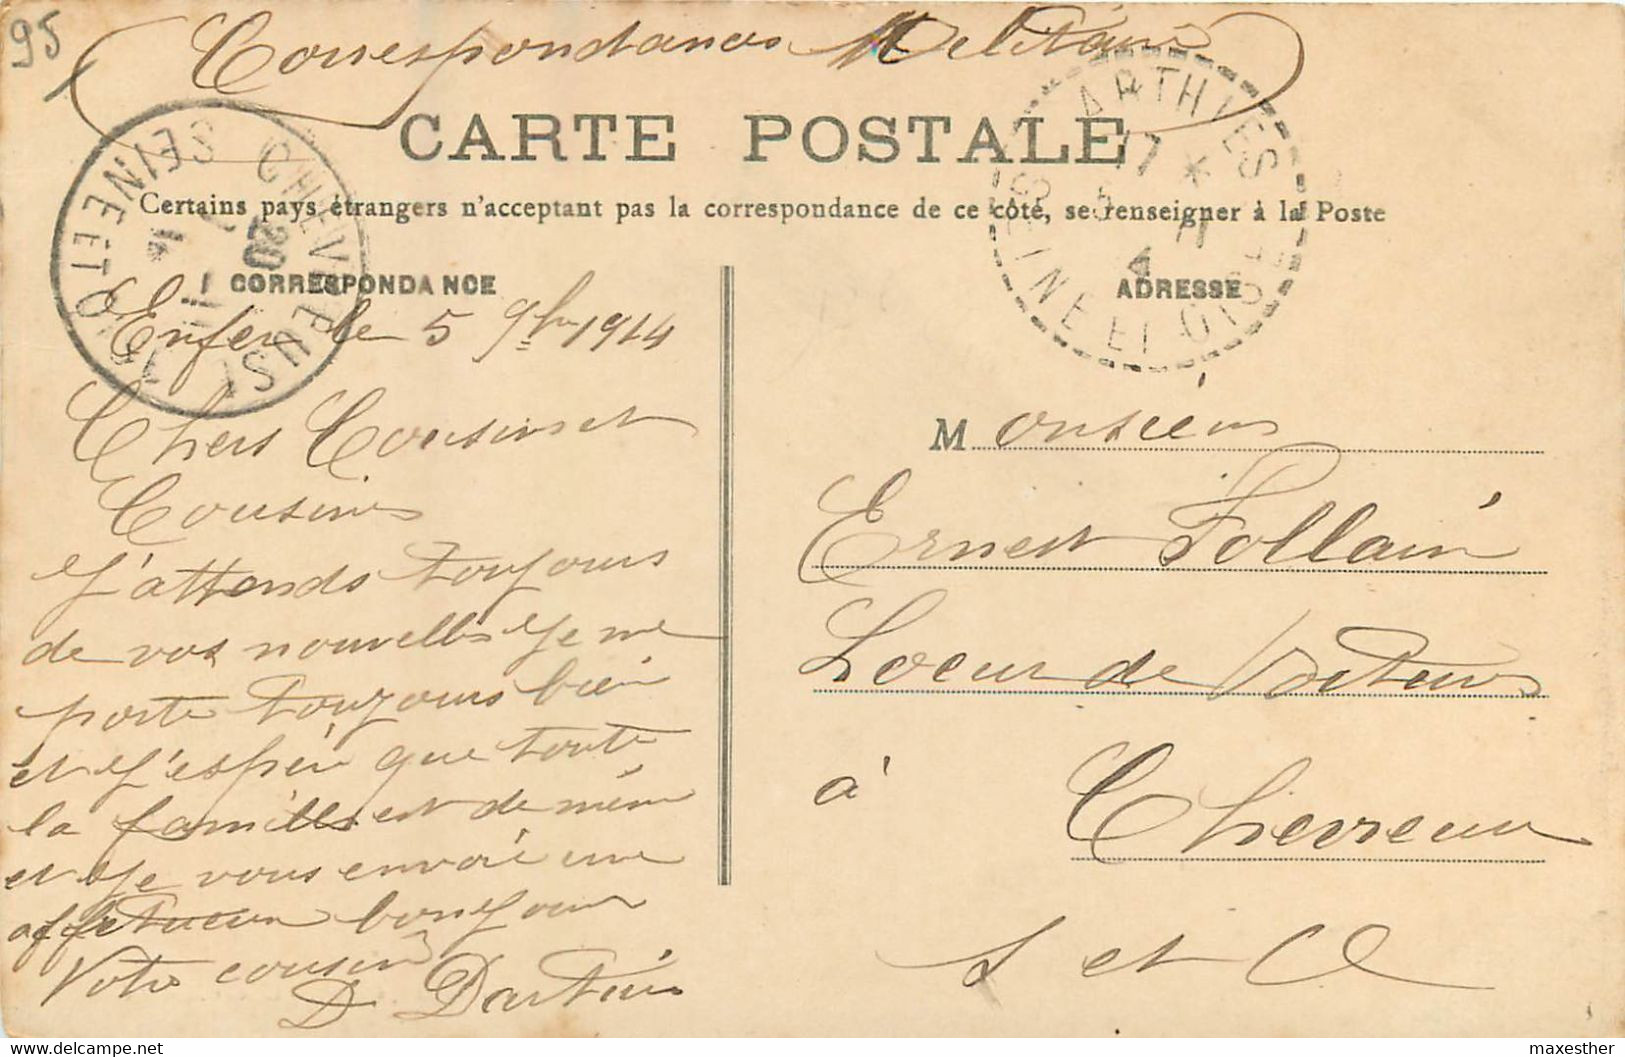 95
Correspondance Militaire
CARTE POSTALE
Certains pays étrangers n'acceptent pas la correspondance de ce côté, se renseigner à la Poste
CORRESPONDANCE
ADRESSE
ARTHIES
17
5 11
SEINE ET OISE
CHEVREUSE
20
11
SEINE ET OISE
Enfer le 5 9bre 1914
Chers Cousins et
Cousines
J'attends toujours
de vos nouvelles Je me
porte toujours bien
et j'espère que toute
la famille est de même
et je vous envoie une
affectueux bonjour
Votre cousin
D
Monsieur
Ernest Follain
Loueur de Voitures
à Chevreuse
S et O
maxesther